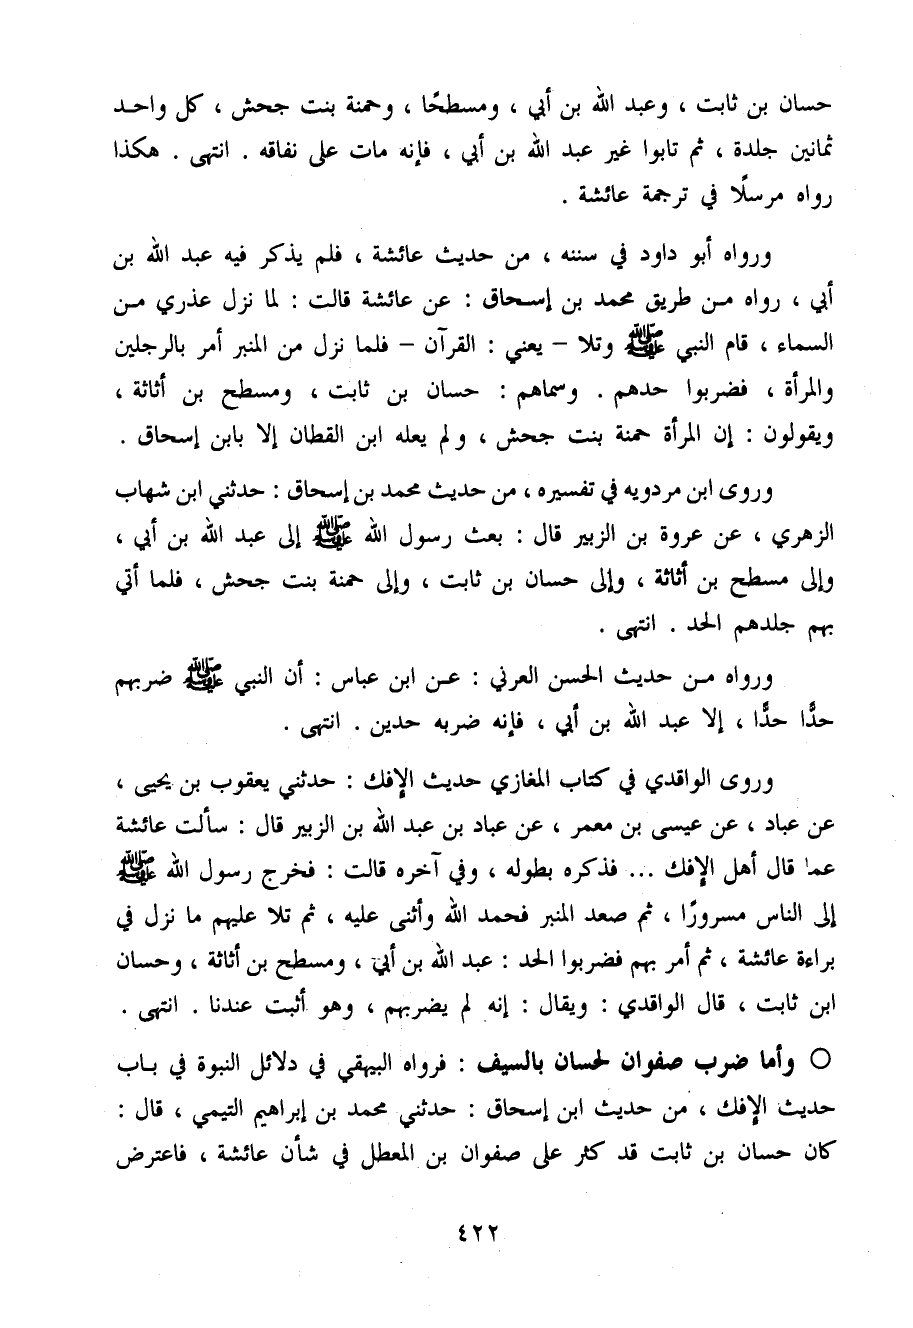 حسان بن ثابت ، وعبد الله بن أبي ، ومسطحًا ، وحمنة بنت جحش ، كل واحد
ثمانين جلدة ، ثم تابوا غير عبد الله بن أبي ، فإنه مات على نفاقه . انتهى . هكذا
رواه مرسلًا في ترجمة عائشة .
ورواه أبو داود في سننه ، من حديث عائشة ، فلم يذكر فيه عبد الله بن
أبي ، رواه من طريق محمد بن إسحاق : عن عائشة قالت : لما نزل عذري من
السماء ، قام النبي ﷺ وتلا – يعني : القرآن – فلما نزل من المنبر أمر بالرجلين
والمرأة ، فضربوا حدهم . وسماهم : حسان بن ثابت ، ومسطح بن أثاثة ،
ويقولون : إن المرأة حمنة بنت جحش ، ولم يعله ابن القطان إلا بابن إسحاق .
وروى ابن مردويه في تفسيره ، من حديث محمد بن إسحاق : حدثني ابن شهاب
الزهري ، عن عروة بن الزبير قال : بعث رسول الله ﷺ إلى عبد الله بن أبي ،
وإلى مسطح بن أثاثة ، وإلى حسان بن ثابت ، وإلى حمنة بنت جحش ، فلما أتي
بهم جلدهم الحد . انتهى .
ورواه من حديث الحسن العرني : عن ابن عباس : أن النبي ﷺ ضربهم
حدًّا حدًّا ، إلا عبد الله بن أبي ، فإنه ضربه حدين . انتهى .
وروى الواقدي في كتاب المغازي حديث الإفك : حدثني يعقوب بن يحيى ،
عن عباد ، عن عيسى بن معمر ، عن عباد بن عبد الله بن الزبير قال : سألت عائشة
عما قال أهل الإفك ... فذكره بطوله ، وفي آخره قالت : فخرج رسول الله ﷺ
إلى الناس مسرورًا ، ثم صعد المنبر فحمد الله وأثنى عليه ، ثم تلا عليهم ما نزل في
براءة عائشة ، ثم أمر بهم فضربوا الحد : عبد الله بن أبي ، ومسطح بن أثاثة ، وحسان
ابن ثابت ، قال الواقدي : ويقال : إنه لم يضربهم ، وهو أثبت عندنا . انتهى .
○ وأما ضرب صفوان لحسان بالسيف : فرواه البيهقي في دلائل النبوة في باب
حديث الإفك ، من حديث ابن إسحاق : حدثني محمد بن إبراهيم التيمي ، قال :
كان حسان بن ثابت قد كثر على صفوان بن المعطل في شأن عائشة ، فاعترض
٤٢٢